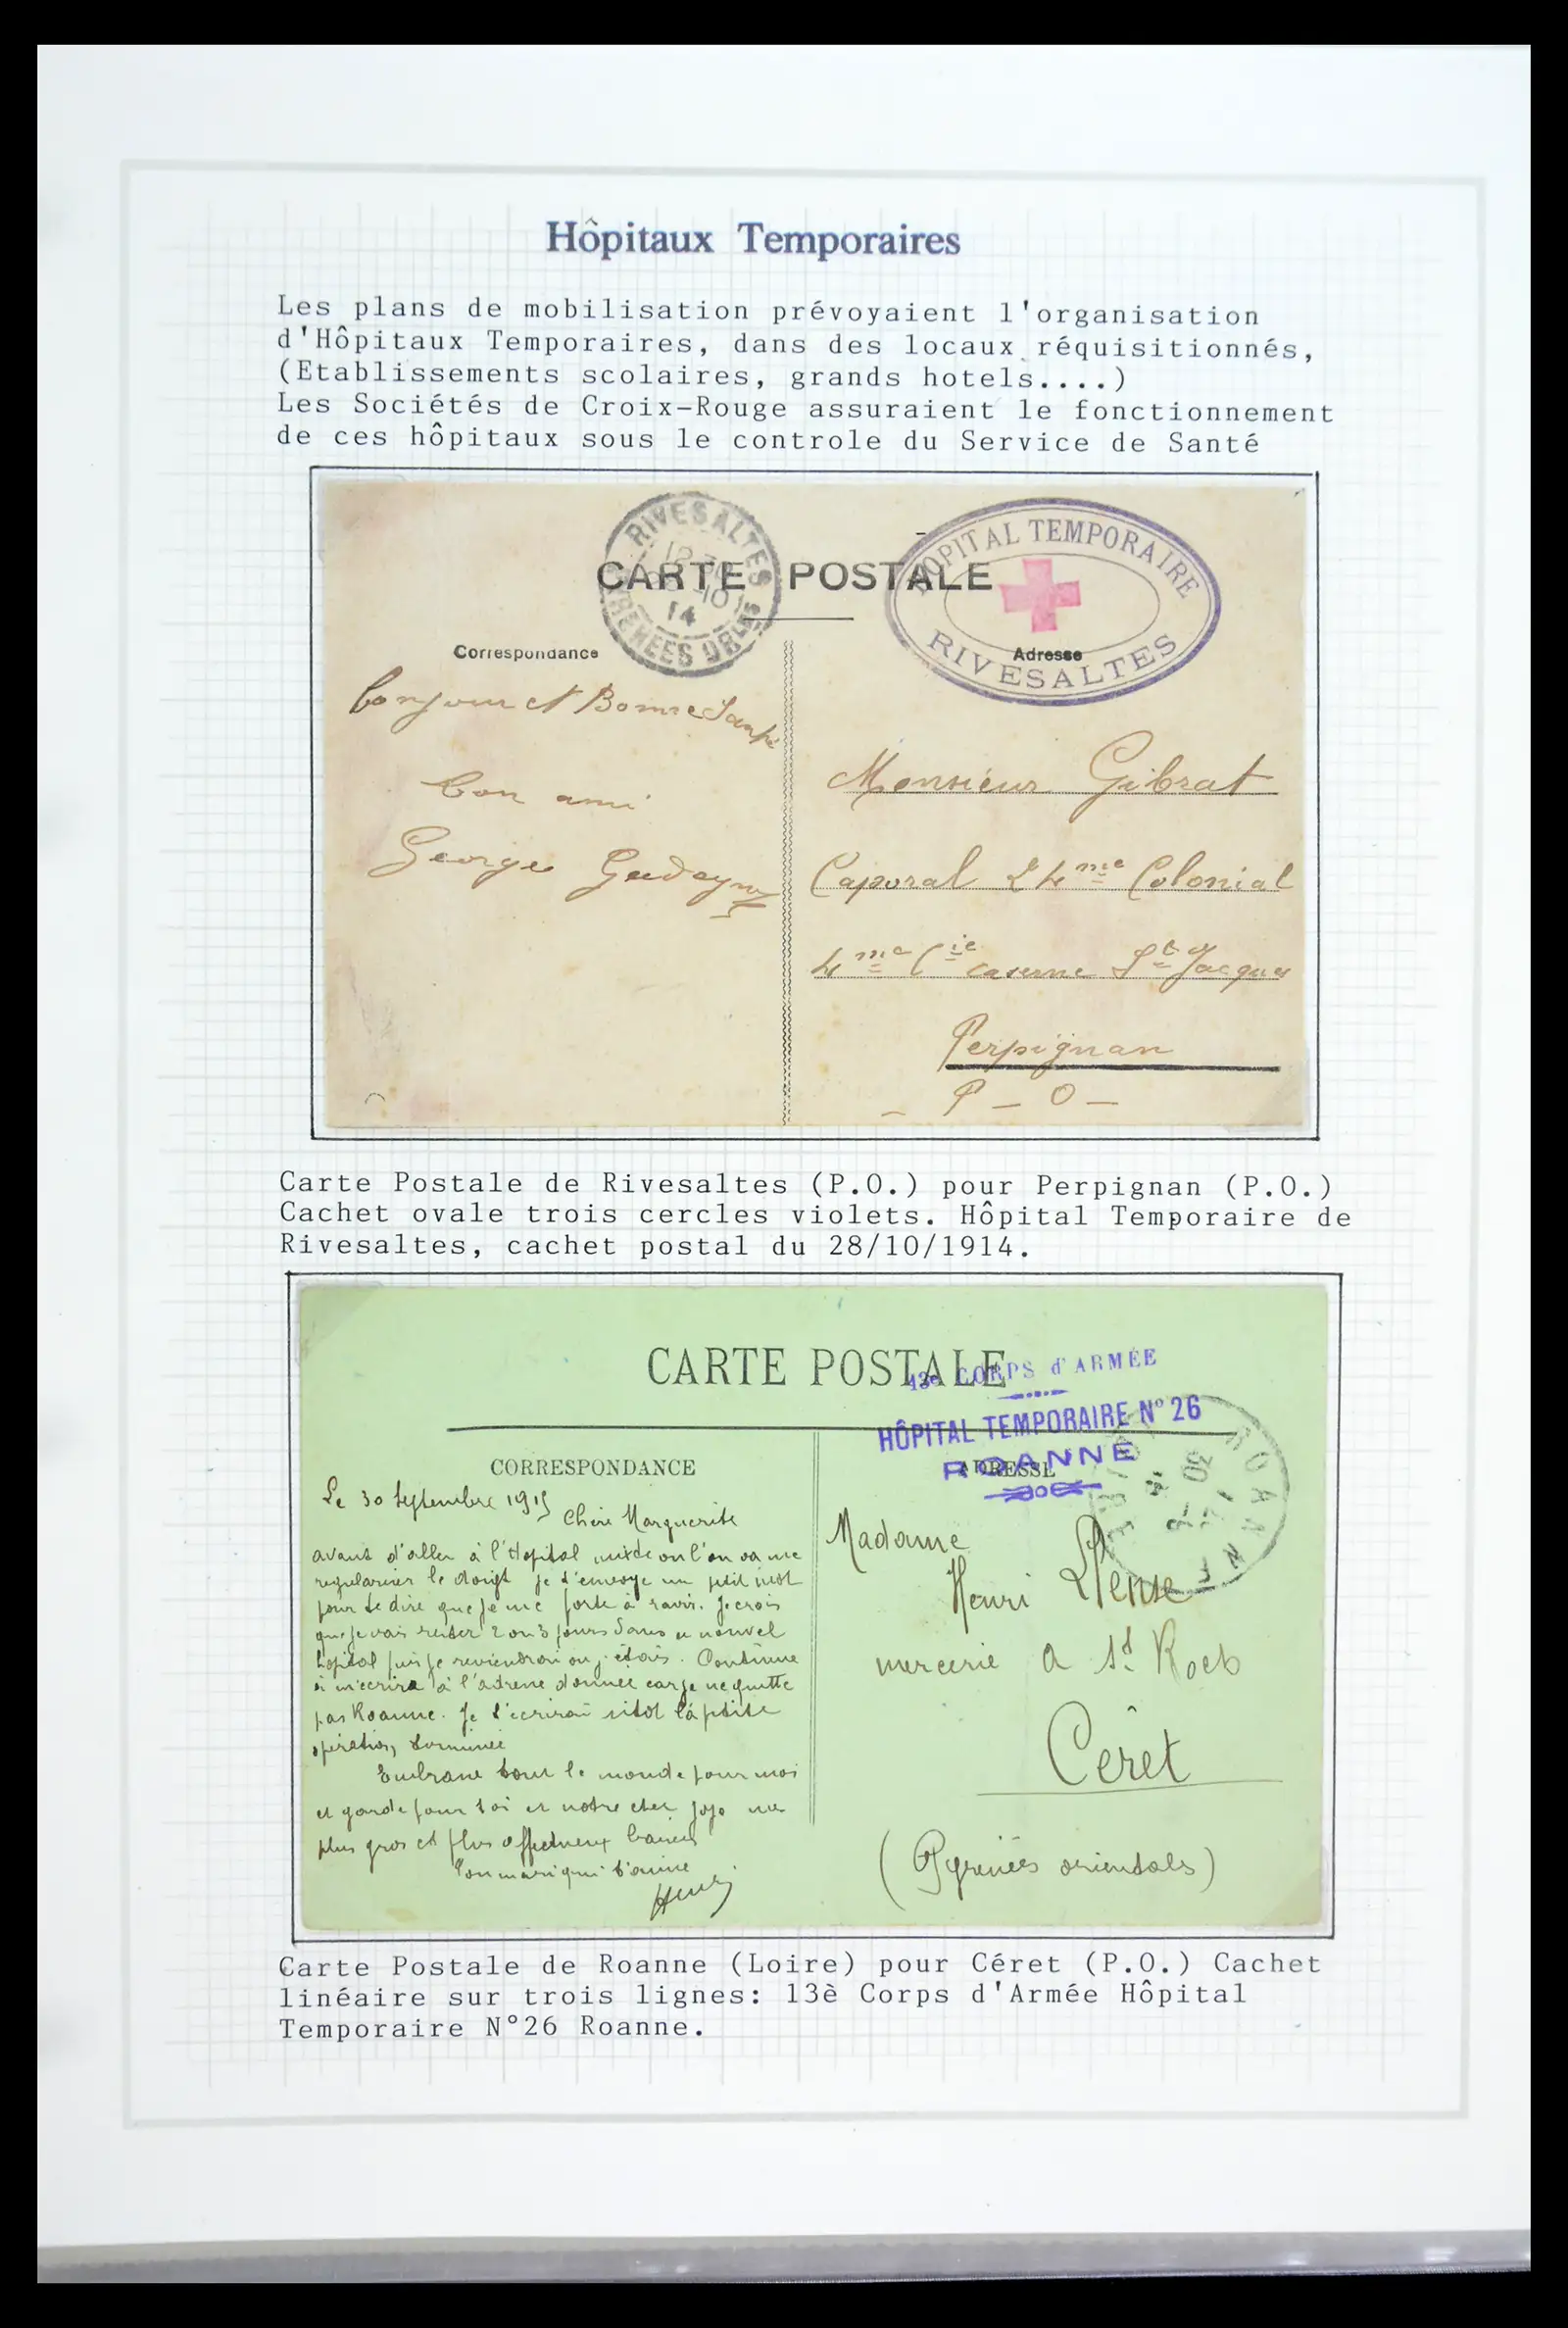 Hôpitaux Temporaires
Les plans de mobilisation prévoyaient l'organisation
d'Hôpitaux Temporaires, dans des locaux réquisitionnés,
(Etablissements scolaires, grands hotels....)
Les Sociétés de Croix-Rouge assuraient le fonctionnement
de ces hôpitaux sous le controle du Service de Santé
RIVESALTES
14
PYRENEES ORles
CARTE POSTALE
HOPITAL TEMPORAIRE
RIVESALTES
Correspondance
Adresse
bonjour et Bonne Santé
bon ami
Georges
Monsieur Gibrat
Caporal 24me Colonial
4me Cie caserne St Jacques
Perpignan
P - O -
Carte Postale de Rivesaltes (P.O.) pour Perpignan (P.O.)
Cachet ovale trois cercles violets. Hôpital Temporaire de
Rivesaltes, cachet postal du 28/10/1914.
CARTE POSTALE
13e CORPS d'ARMÉE
HÔPITAL TEMPORAIRE N° 26
ROANNE
ROANNE
CORRESPONDANCE
ADRESSE
Le 30 Septembre 1915
Chère Marguerite
avant d'aller à l'Hopital mixte ou l'on va me
regulariser le doigt je t'envoye un petit mot
pour te dire que je me porte à ravir. Je crois
que je vais rester 2 ou 3 jours dans ce nouvel
hopital puis je reviendrai ou j'étais. Continue
à m'ecrire à l'adresse donnée car je ne quitte
pas Roanne. Je t'ecrirai sitot la ptite
opération terminée
Embrasse tout le monde pour moi
et garde pour toi et notre cher Jojo mes
plus gros et plus affectueux baisers
Ton mari qui t'aime
Henri
Madame
Henri
mercerie a St Roch
Céret
(Pyrénées orientales)
Carte Postale de Roanne (Loire) pour Céret (P.O.) Cachet
linéaire sur trois lignes: 13è Corps d'Armée Hôpital
Temporaire N°26 Roanne.